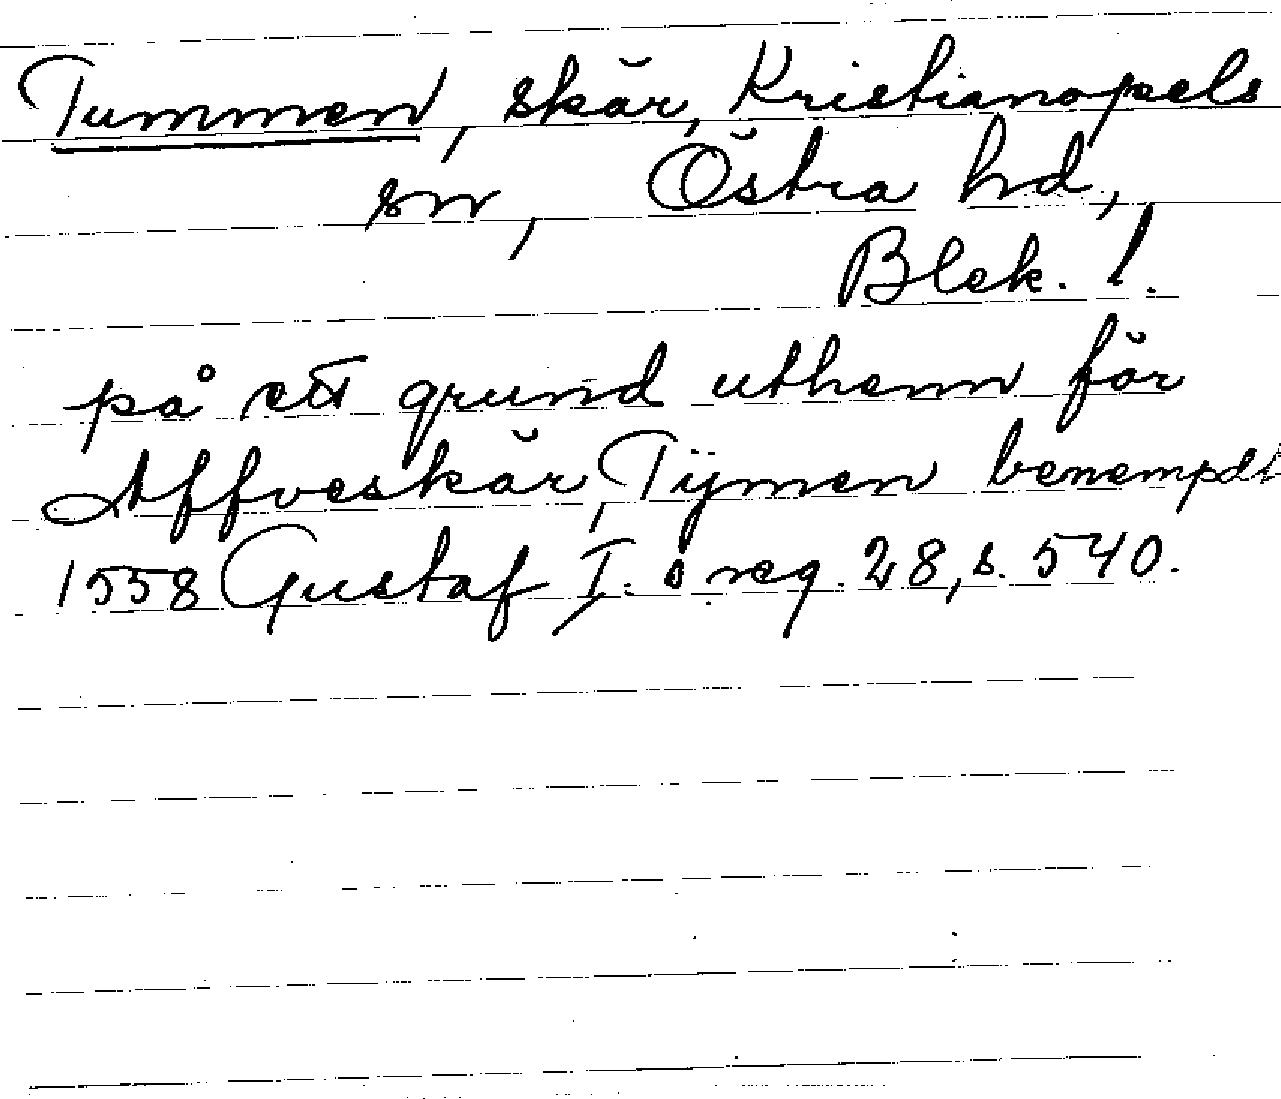 Tummen, skär, Kristianopels
sn, Östra hd,
Blek. l.
på ett grund uthenn för
Affveskär, Tÿmen benempdt
1558 Gustaf I. s reg. 28, s. 540.